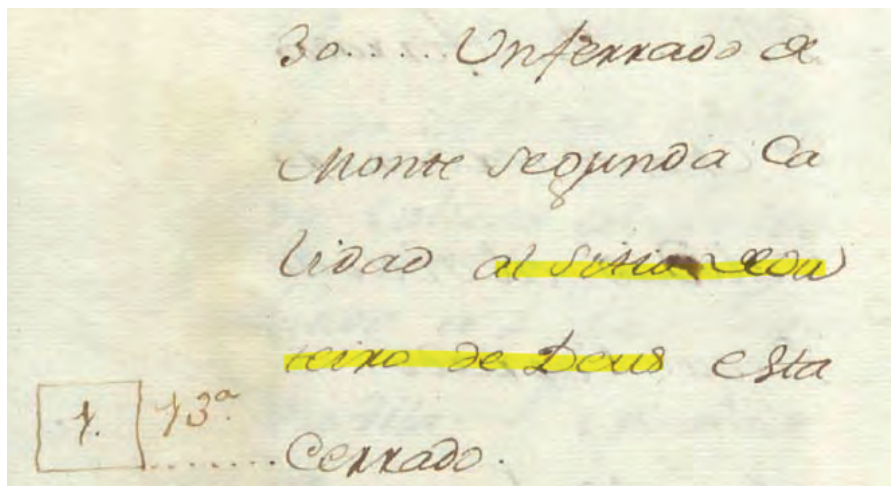 30..... Un ferrado de
Monte segunda Ca
lidad al sitio de ou
teiro de Deus esta
1. 13ª. ....... Cerrado.